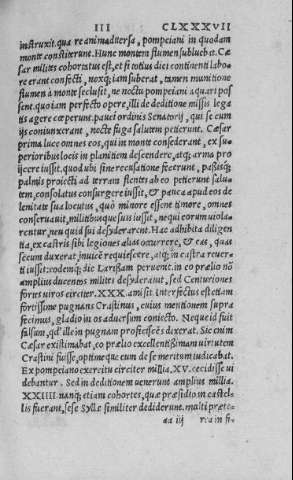 III CLXXXVII
instruxit. qua re animaduersa, pompeiani in quodam
monte constiterunt. Hunc montem flumen subluebat. Cæ
sar milites cohortatus est, et si totius diei continenti labo=
re erant confecti, noxq; iam suberat, tamen munitione
flumen à monte seclusit, ne noctu pompeiani aquari pos
sent. quo iam perfecto opere, illi de deditione missis lega
tis agere cœperunt. pauci ordinis Senatorij, qui se cum
ijs coniunxerant, nocte fuga salutem petierunt. Cæsar
prima luce omnes eos, qui in monte consederant, ex su=
perioribus locis in planitiem descendere, atq; arma pro
ijcere iussit. quod ubi sine recusatione fecerunt, passisq;
palmis proiecti ad terram flentes ab eo petierunt salu=
tem, consolatus consurgere iussit, & pauca apud eos de
lenitate sua locutus, quò minore essent timore, omnes
conseruauit, militibusque suis iussit, nequi eorum uiola=
rentur, neu quid sui desyderarent. Hac adhibita diligen
tia, ex castris sibi legiones alias occurrere, & eas, quas
secum duxerat inuicē requiescere, atq; in castra reuer=
ti iussit: eodemq; die Larissam peruenit. in eo prælio nō
amplius ducentos milites desyderauit, sed Centuriones
fortes uiros circiter. XXX. amisit. Interfectus est etiam
fortissime pugnans Crastinus, cuius mentionem supra
fecimus, gladio in os aduersum coniecto. Neque id fuit
falsum, qd' ille in pugnam proficiscēs dixerat. Sic enim
Cæsar existimabat, eo prælio excellentißimam uirtutem
Crastini fuisse, optimeque eum de se meritum iudicabat.
Ex pompeiano exercitu circiter millia. XV. cecidisse ui
debantur. Sed in deditionem uenerunt amplius millia.
XXIIII. nanq; etiam cohortes, quæ præsidio in castel=
lis fuerant, sese Syllæ similiter dediderunt. multi præte=
aa iij rea in fi=